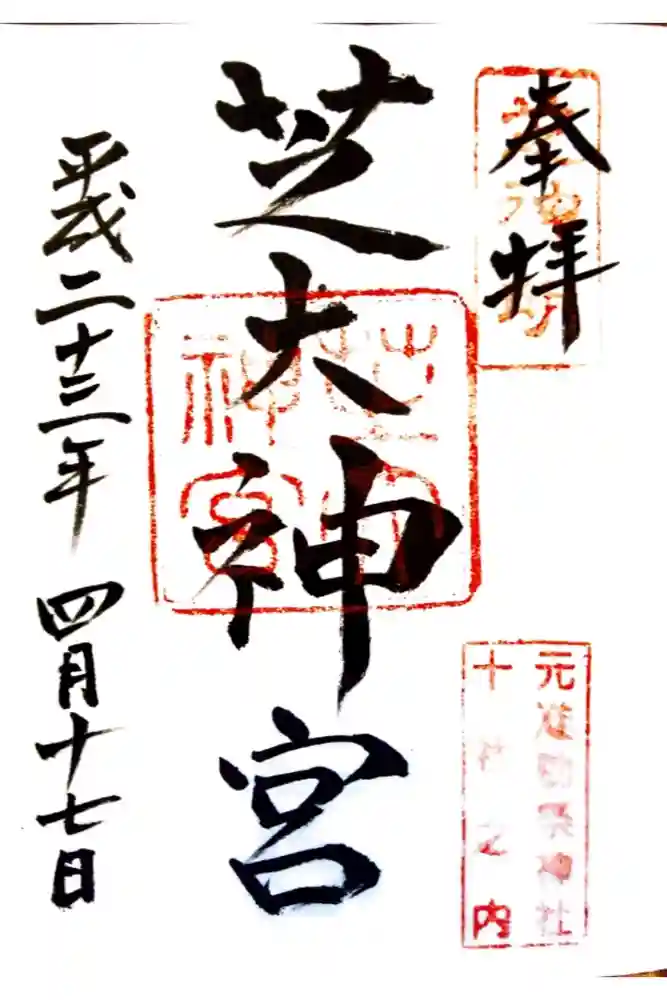 奉拝
芝大神宮
平成二十三年 四月十七日
芝大神宮
元准勅祭神社
十社之内